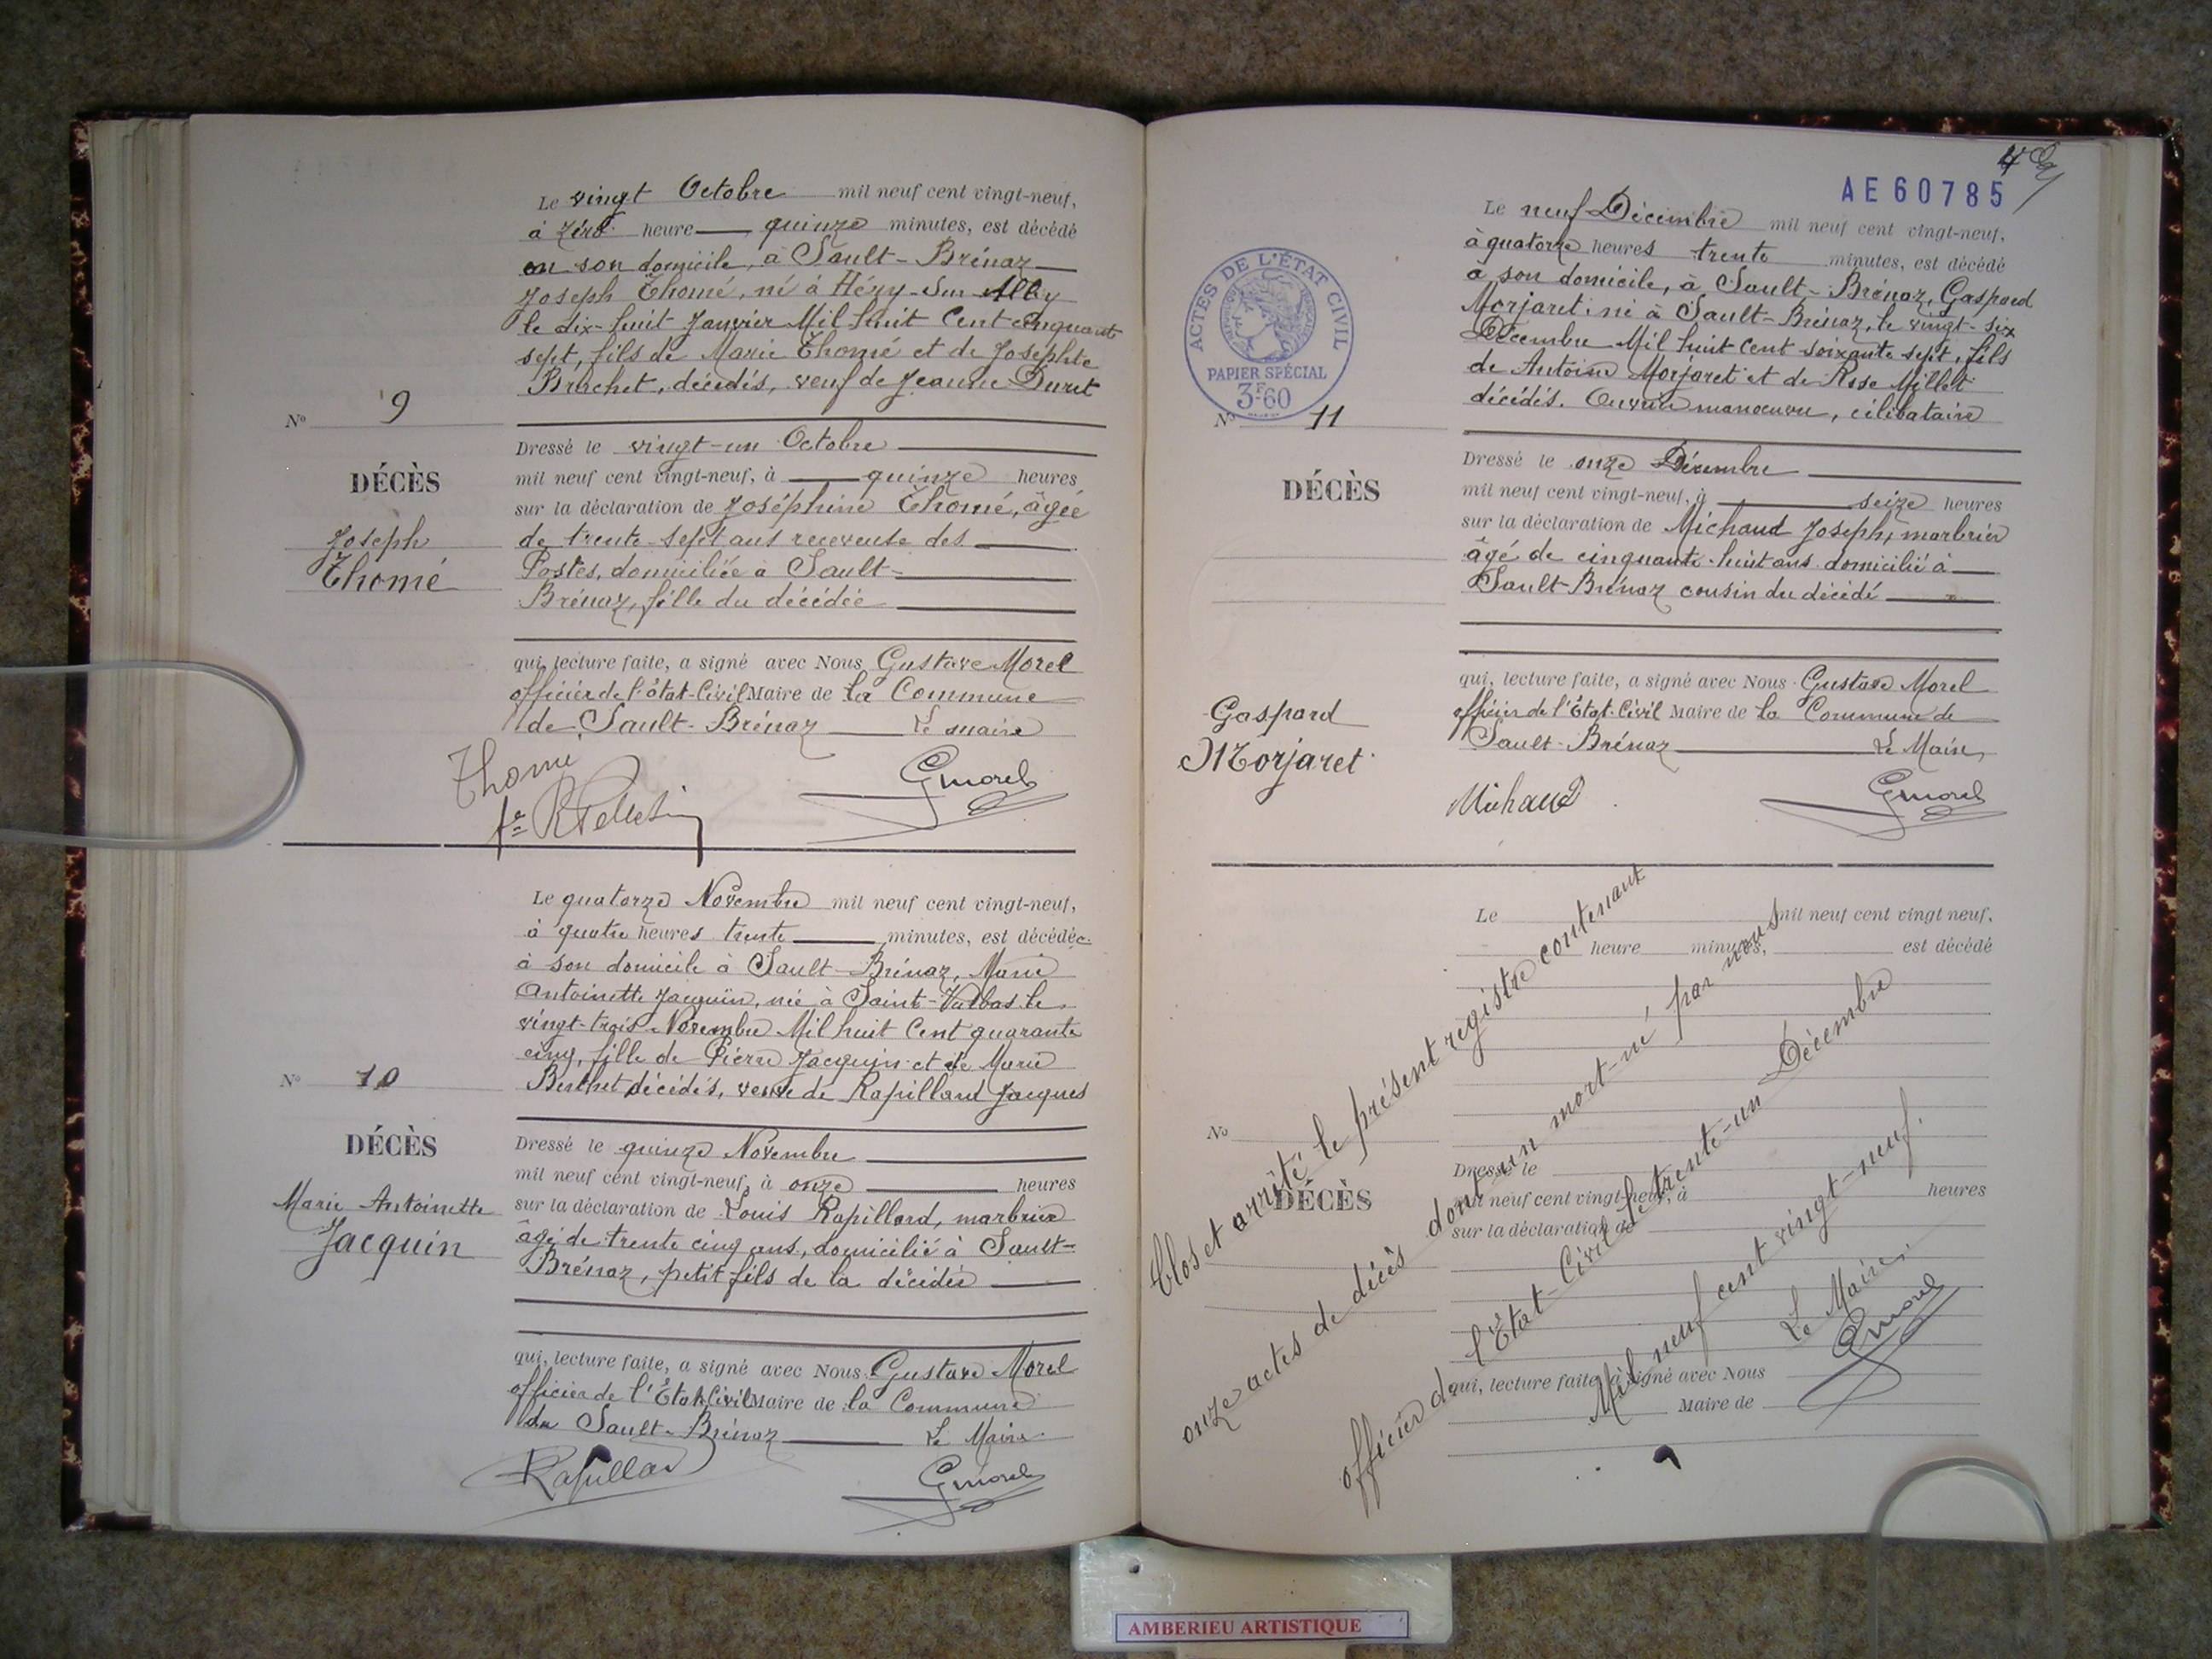 Le vingt Octobre mil neuf cent vingt-neuf,
à zéro heure quinze minutes, est décédé
en son domicile, à Sault-Brénaz
Joseph Thomé, né à Héry-Sur-Alby
le dix-huit Janvier Mil huit Cent cinquante
sept, fils de Marie Thomé et de Josephte
Brachet, décédés, veuf de Jeanne Duret
No 9
DÉCÈS
Joseph
Thomé
Dressé le vingt-un Octobre
mil neuf cent vingt-neuf, à quinze heures
sur la déclaration de Joséphine Thomé, âgée
de trente-sept ans receveuse des
Postes, domiciliée à Sault-
Brénaz, fille du décédée
qui, lecture faite, a signé avec Nous Gustave Morel
officier de l'état-Civil Maire de la Commune
de Sault-Brénaz Le maire
Thomé
GMorel
Le quatorze Novembre mil neuf cent vingt-neuf,
à quatre heures trente minutes, est décédée
à son domicile à Sault-Brénaz, Marie
Antoinette Jacquin, née à Saint-Vulbas le
vingt-trois Novembre Mil huit Cent quarante
cinq, fille de Pierre Jacquin et de Marie
Berthet décédés, veuve de Rapillard Jacques
No 10
DÉCÈS
Marie Antoinette
Jacquin
Dressé le quinze Novembre
mil neuf cent vingt-neuf, à onze heures
sur la déclaration de Louis Rapillard, marbrier
âgé de trente cinq ans, domicilié à Sault-
Brénaz, petit-fils de la décédée
qui, lecture faite, a signé avec Nous Gustave Morel
officier de l'État Civil Maire de la Commune
de Sault-Brénaz Le Maire
Rapillard
GMorel
4
AE 60785
ACTES DE L'ÉTAT CIVIL
PAPIER SPÉCIAL
3F60
Le neuf Décembre mil neuf cent vingt-neuf,
à quatorze heures trente minutes, est décédé
à son domicile, à Sault-Brénaz, Gaspard
Morjaret, né à Sault-Brénaz, le vingt-six
Décembre Mil huit Cent soixante sept, fils
de Antoine Morjaret et de Rose Millet
décédés. Ouvrier manoeuvre, célibataire
No 11
DÉCÈS
Gaspard
Morjaret
Dressé le onze Décembre
mil neuf cent vingt-neuf, à seize heures
sur la déclaration de Michaud Joseph, marbrier
âgé de cinquante-huit ans domicilié à
Sault-Brénaz cousin du décédé
qui, lecture faite, a signé avec Nous Gustave Morel
officier de l'État-Civil Maire de la Commune de
Sault-Brénaz Le Maire,
Michaud
GMorel
Le mil neuf cent vingt neuf,
heure minutes, est décédé
No
DÉCÈS
Dressé le
mil neuf cent vingt-neuf, à heures
sur la déclaration de
qui, lecture faite, a signé avec Nous
Maire de
Clos et arrêté le présent registre contenant
onze actes de décès dont un mort-né par nous
officier de l'État-Civil le trente-un Décembre
Mil neuf cent vingt-neuf.
Le Maire,
GMorel
AMBERIEU ARTISTIQUE